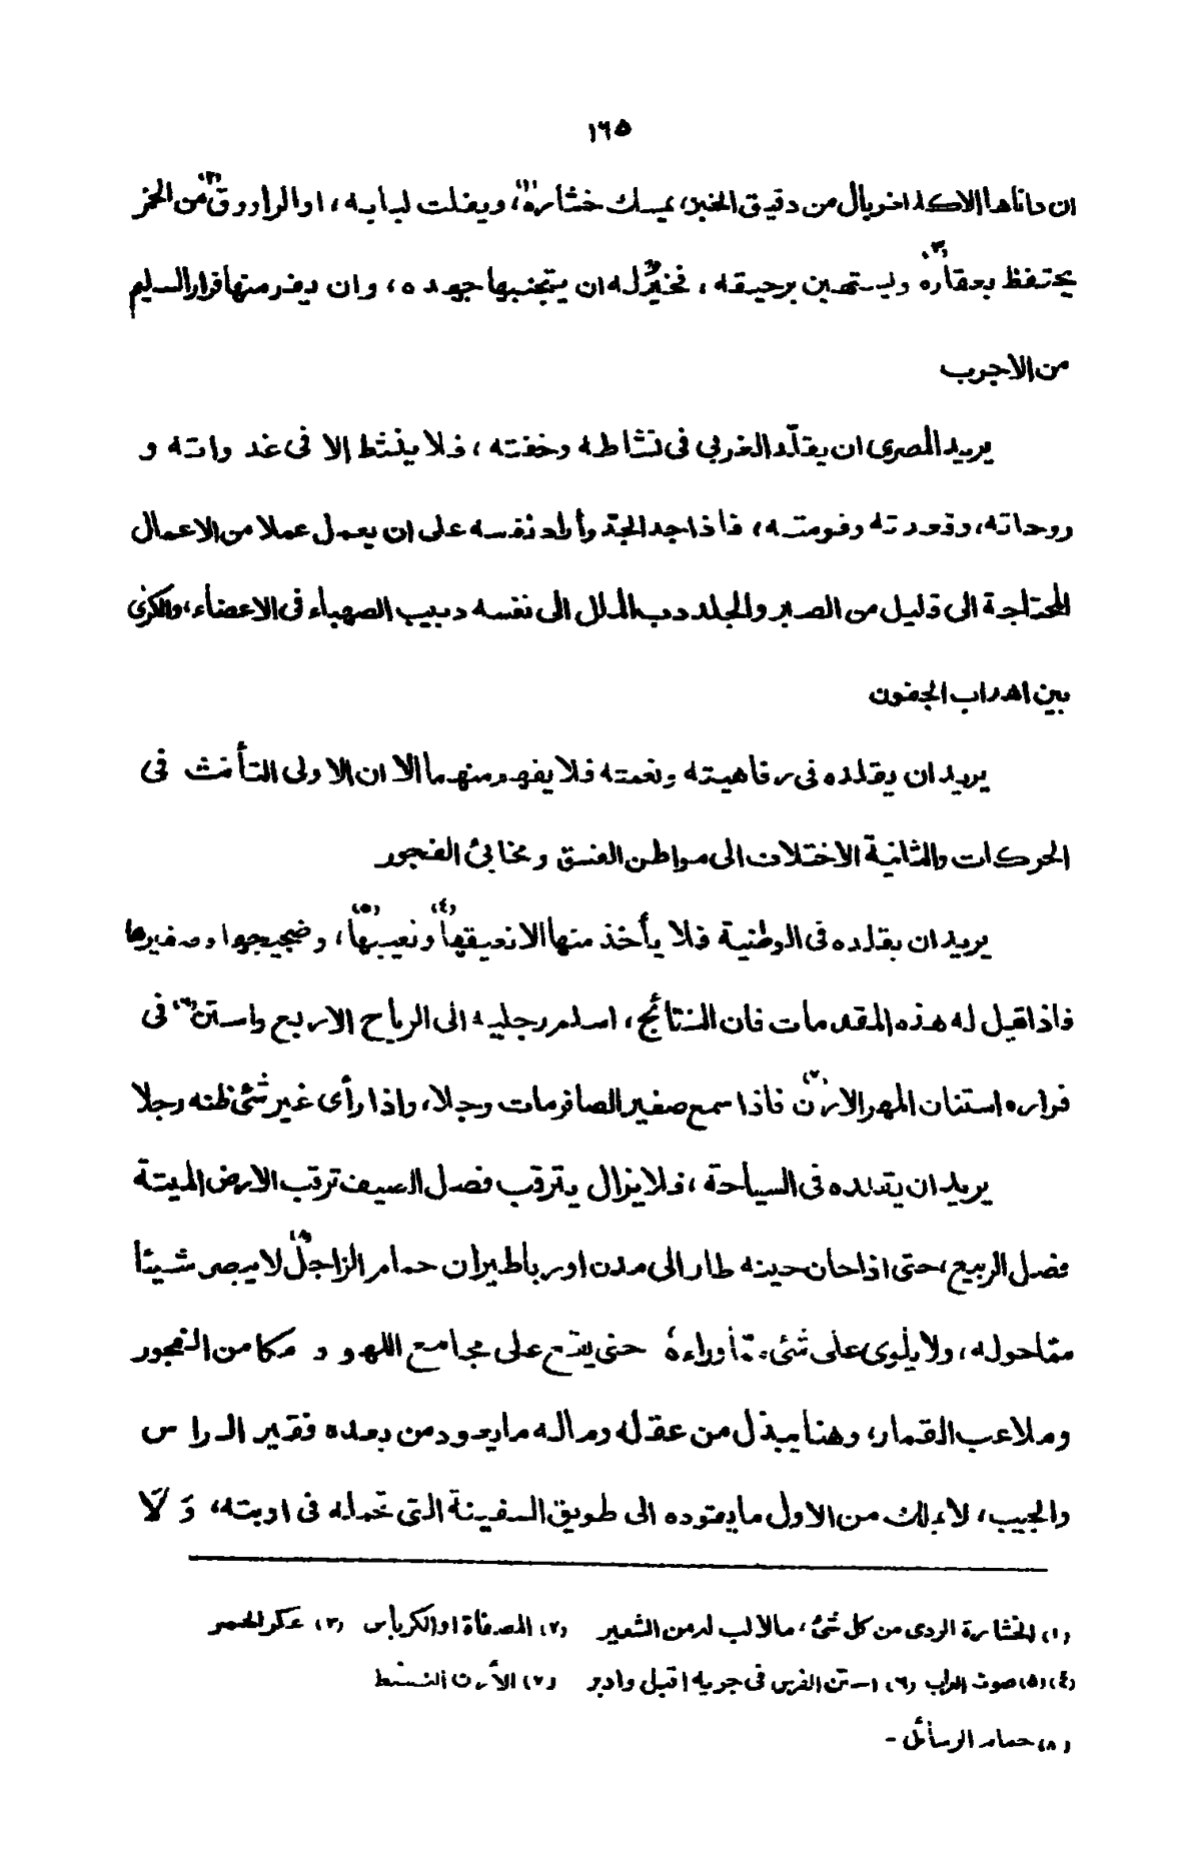 ١٦٥
ان داناها الا كالغربال من دقيق الخبز، يمسك خشارة(١)، ويفلت لبابه، او الراووق(٢) من الخمر
يحتفظ بعقاره(٣) ويستهين برحيقه، فخيرٌ له ان يتجنبها جهده، وان يفر منها فرار السليم
من الاجرب
يريد المصرى ان يقلّد الغربي فى نشاطه وخفته، فلا ينشط إلا فى غد واته و
روحاته، وقعدته وقومته، فاذا جد الجدّ وأراد نفسه على ان يعمل عملا من الاعمال
المحتاجة الى قليل من الصبر والجلد دب الملل الى نفسه دبيب الصهباء فى الاعضاء، والكرى
بين اهداب الجفون
يريد ان يقلده فى رفاهيته ونعمته فلا يفهم منهما الا ان الاولى التأنث فى
الحركات والثانية الاختلاف الى مواطن الفسق ومخابئ الفجور
يريد ان يقلده فى الوطنية فلا يأخذ منها الا نعيقها(٤) ونعيبها(٥)، وضجيجها وصفيرها
فاذا قيل له هذه المقدمات فان النتائج، اسلم رجليه الى الرياح الاربع واستن(٦) فى
فراره استنان المهر الارن(٧) فاذا سمع صفير الصافر مات وجلا، واذا رأى غير شئ ظنه رجلا
يريد ان يقلده فى السياحة، فلا يزال يترقب فصل الصيف ترقب الارض الميتة
فصل الربيع، حتى اذا حان حينه طار الى مدن اوربا طيران حمام الزاجل(٨) لا يبصر شيئا
مما حوله، ولا يلوى على شئ مما وراءه حتى يقع على مجامع اللهو و مكامن الفجور
وملاعب القمار، وهنا يبذل من عقله وماله ما يعود من بعده فقير الراس
والجيب، لا يملك من الاول ما يقوده الى طريق السفينة التى تحمله فى اوبته، وَ لَا
(١) الخشارة الردى من كل شئ، مالا لب له من الشعير (٢) المصفاة او الكرباس (٣) عكر الخمر
(٤) (٥) صوت الغراب (٦) استن الفرس فى جريه اقبل وادبر (٧) الأرن النشط
(٨) حمام الرسائل -